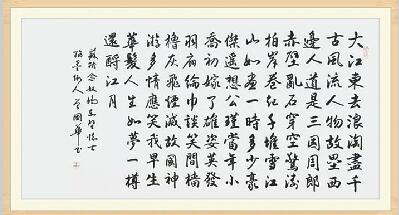 大江東去浪淘盡千
古風流人物故壘西
邊人道是三國周郎
赤壁亂石穿空驚濤
拍岸卷起千堆雪江
山如畫一時多少豪
傑遙想公瑾當年小
喬初嫁了雄姿英發
羽扇綸巾談笑間檣
櫓灰飛煙滅故國神
游多情應笑我早生
華髮人生如夢一樽
還酹江月
蘇軾念奴嬌赤壁懷古
國華書